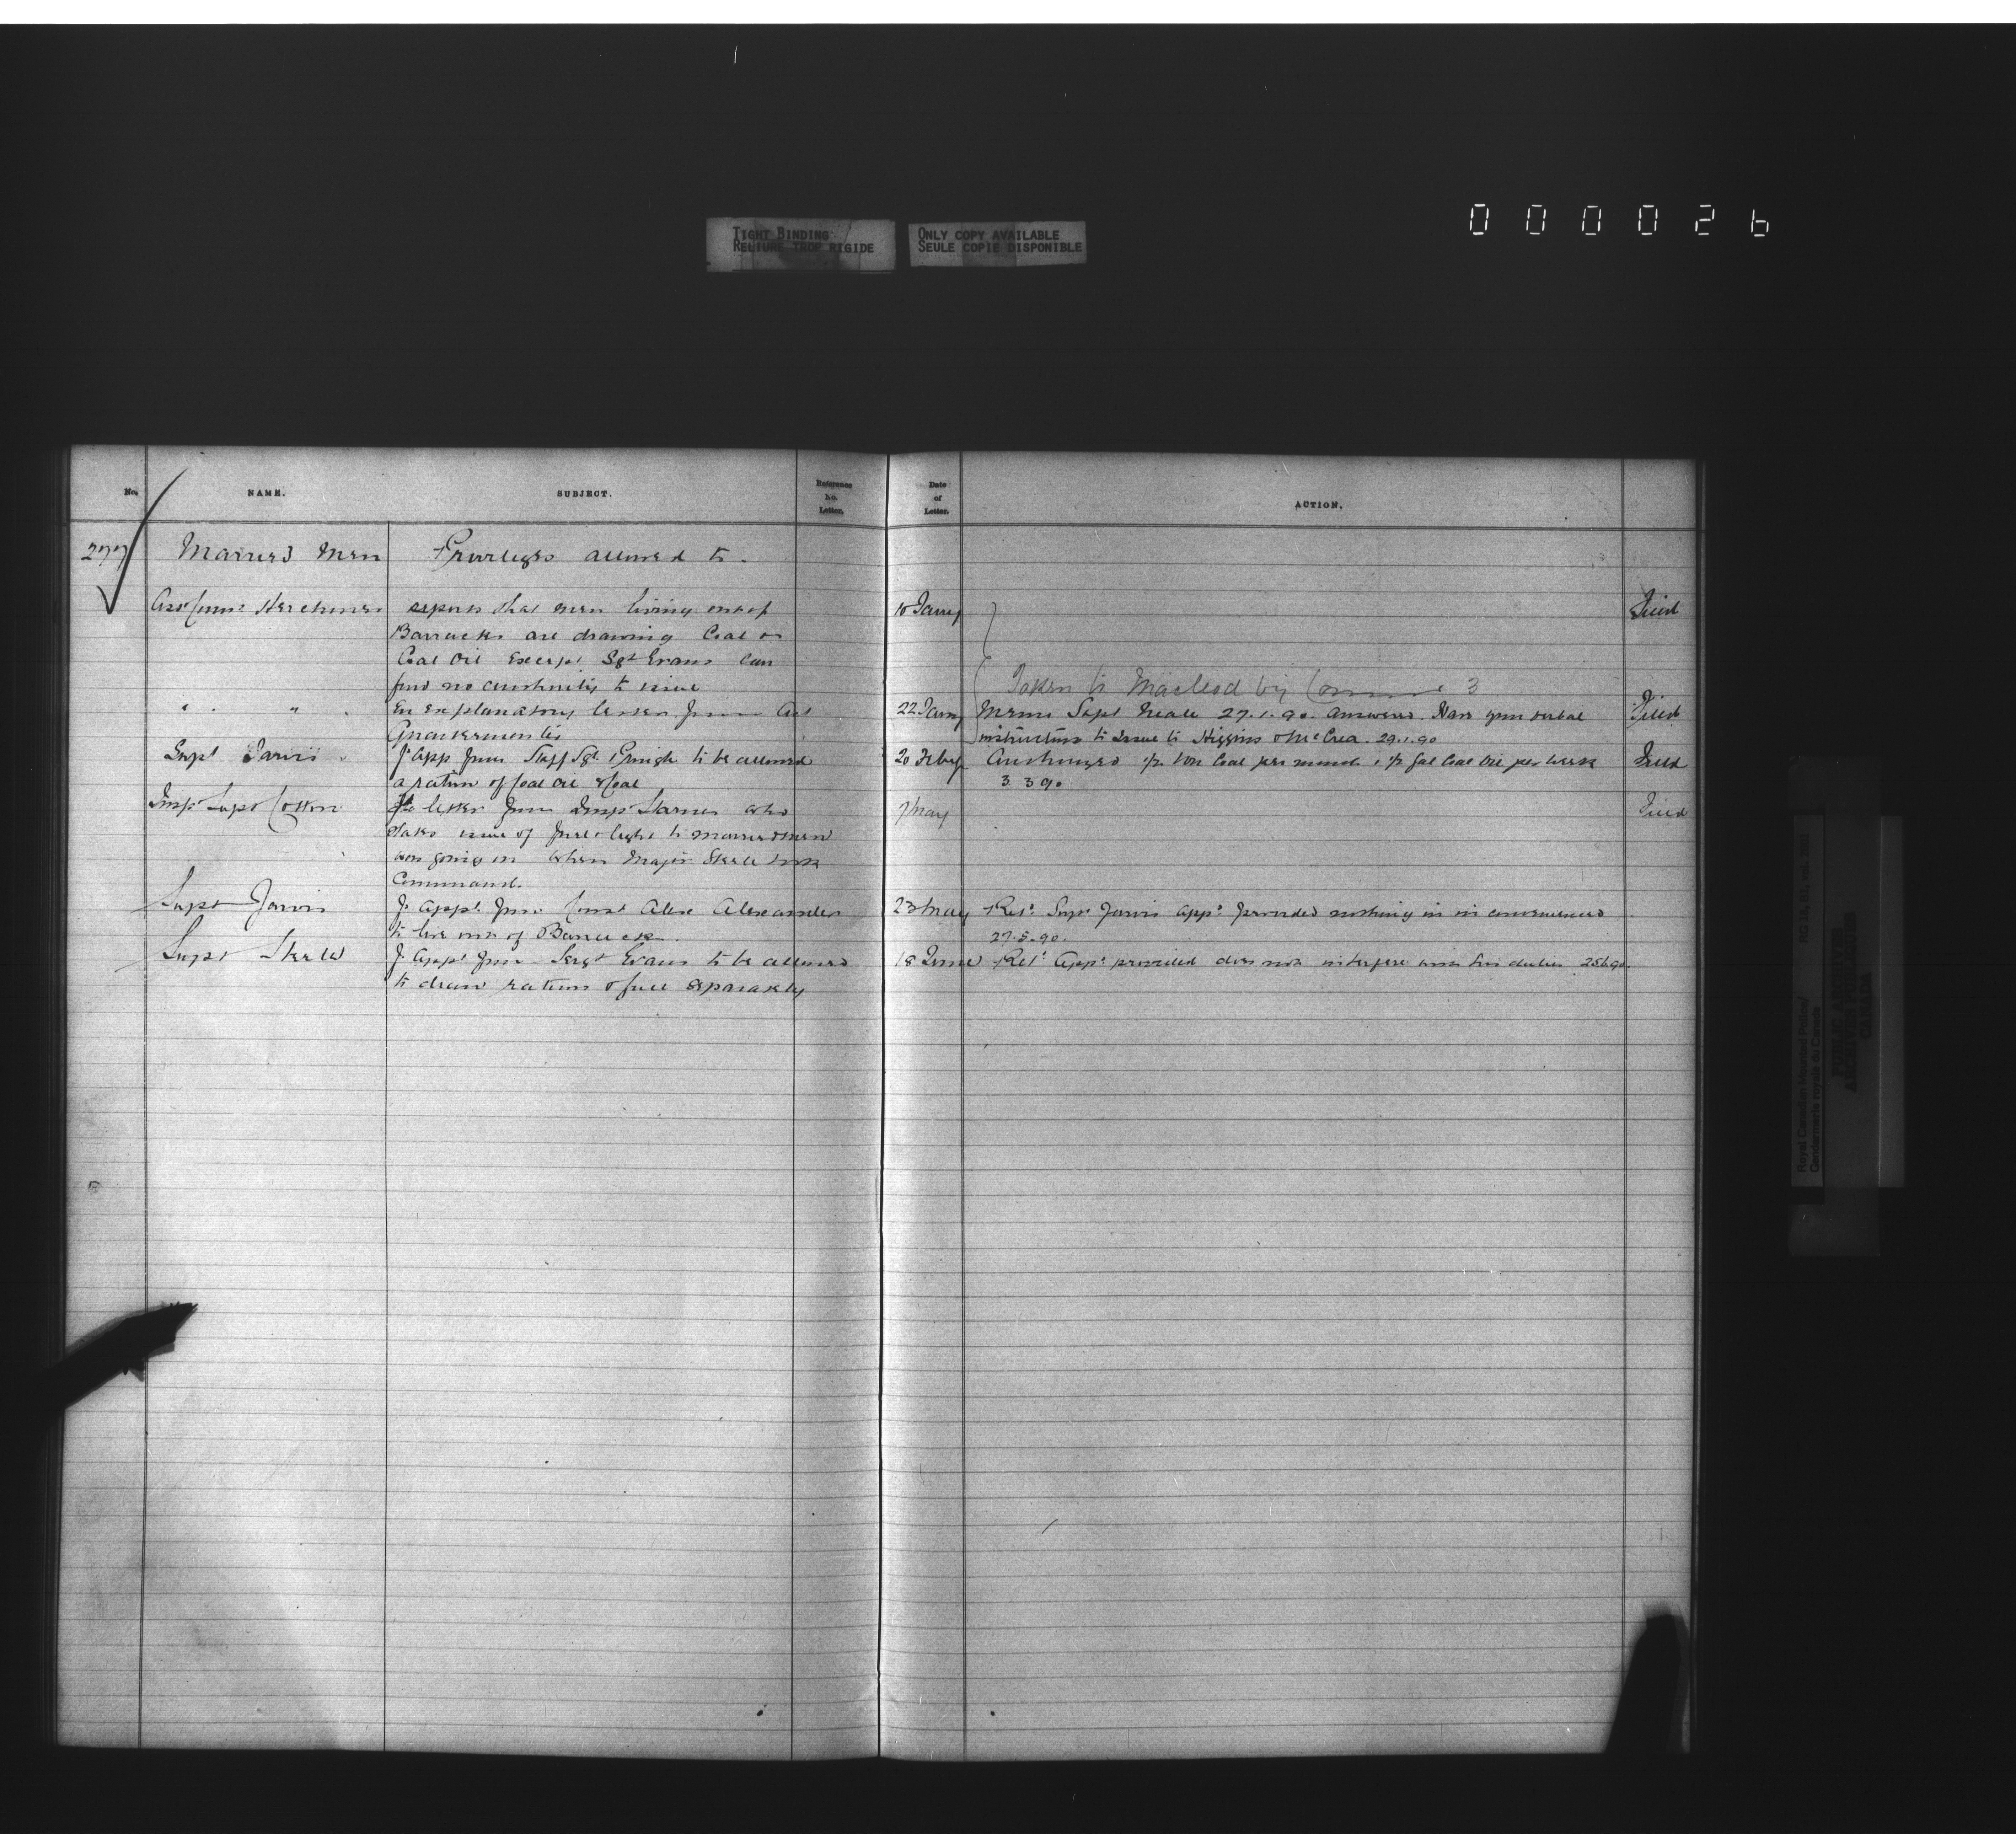 TIGHT BINDING
RELIURE TROP RIGIDE
ONLY COPY AVAILABLE
SEULE COPIE DISPONIBLE
000026
No. NAME. SUBJECT. Reference to Letter. Date of Letter. ACTION.
277 Married Men Privileges allowed to.
Asst Commr Herchmer reports that men living out of 10 Jany Filed
Barracks are drawing Coal or
Coal Oil Except Sgt Evans Can
find no authority to issue
Taken to Macleod by 3
" " En explanatory letter from Act 22 Jany Memo Supt Neale 27.1.90. answered. Have your verbal Filed
Quartermaster instructions to Issue to Higgins & McCrea. 29.1.90
Supt Jarvis F. app from Staff Sgt to be allowed 20 Feby Authorized ½ ton Coal per month & ½ gal Coal Oil per week Filed
a ration of Coal Oil & Coal 3 3 90
Supt Cotton letter from Insp Starnes who 7 May Filed
states issue of fuel & light to married men
was going on when Major Steele took
Command.
Supt Jarvis F. appn from Const Alex Alexander 23 May Retd Supt Jarvis appd provided nothing in inconvenienced
to live out of Barracks. 27.5.90.
Supt Steele F. Appn from Sergt Evans to be allowed 18 June Retd Appd provided does not interfere with his duties 25.6.90.
to draw rations & fuel separately
Royal Canadian Mounted Police/
Gendarmerie royale du Canada
PUBLIC ARCHIVES
ARCHIVES PUBLIQUES
CANADA